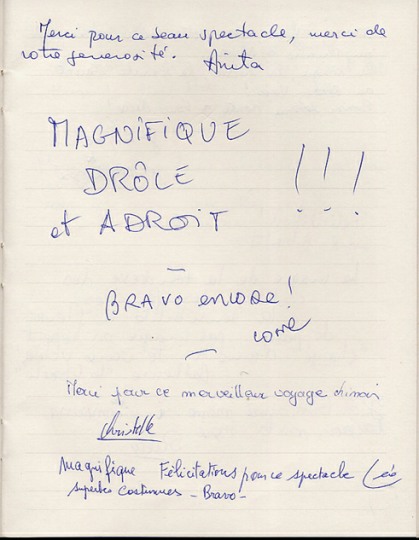 Merci pour ce beau spectacle, merci de
votre generosité. Anita
MAGNIFIQUE
DRÔLE !!!
et ADROIT
–
BRAVO encore!
Merci pour ce merveilleux voyage chinois
Christelle
Magnifique Félicitations pour ce spectacle
superbes costumes - Bravo -